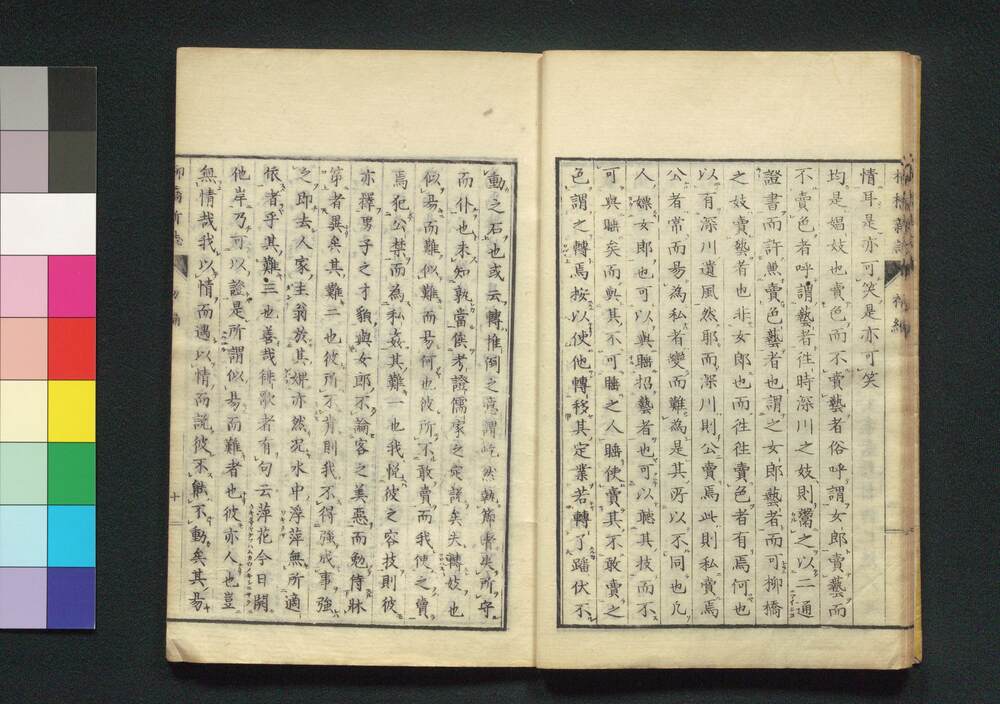 情耳是亦可笑是亦可笑
均是娼妓也賣色而不賣藝者俗呼謂女郎賣藝而
不賣色者呼謂藝者往時深川之妓則鬻之以二通
證書而許兼賣色藝者也謂之女郎藝者而可柳橋
之妓賣藝者也非女郎也而往往賣色者有焉何也
以有深川遺風然耶而深川則公賣焉此則私賣焉
公者常而易為私者變而難為是其所以不同也凡
人嫖女郎也可以與睡招藝者也可以聽其技而不
可與睡矣而與其不可睡之人睡使賣其不敢賣之
色謂之轉焉按以使他轉移其定業若轉了踏伏不
動之石也或云轉推倒之意謂屹然執節者臾所守
而仆也未知孰當俟考證儒家之定説矣夫轉妓也
似易而難似難而易何也彼所不敢賣而我使之賣
焉犯公禁而為私姦其難一也我悦彼之容技則彼
亦擇男子之才貌與女郎不論客之美惡而勉侍牀
第者異矣其難二也彼所不肯則我不得強成事強
之即去人家主翁於其婢亦然況水中浮萍無所適
依者乎其難三也善哉俳歌者有句云萍花今日開
他岸乃可以證是所謂似易而難者也彼亦人也豈
無情哉我以情而遇以情而説彼不能不動矣其易
十